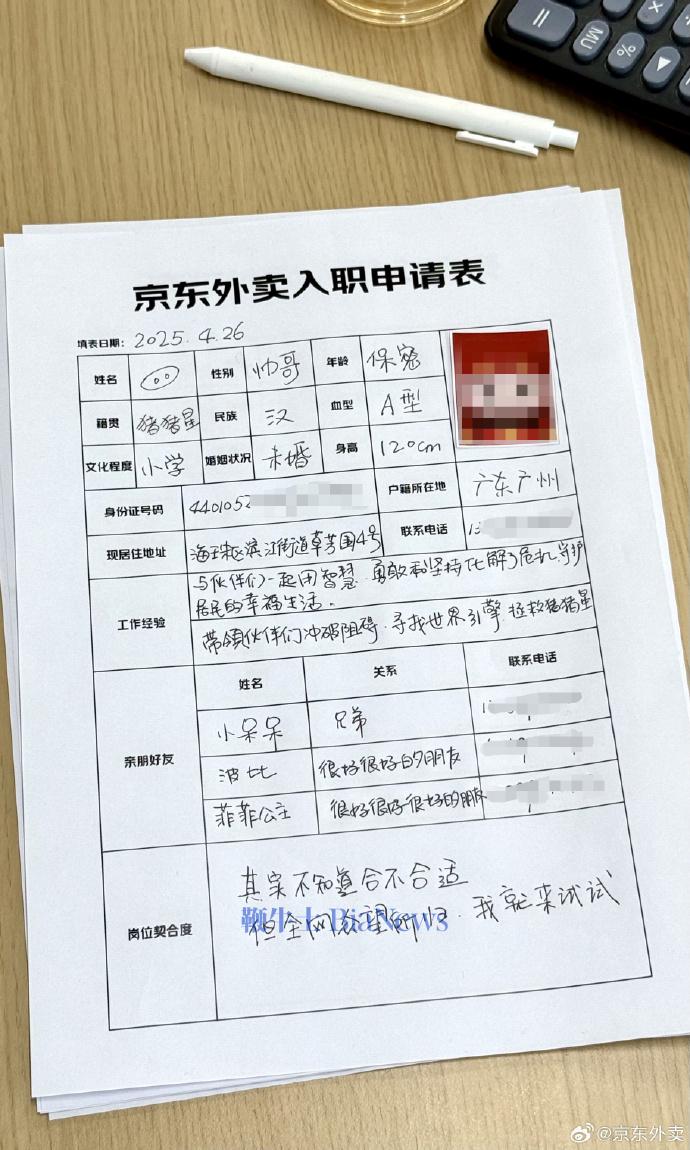 京东外卖入职申请表
填表日期: 2025.4.26
姓名 性别 帅哥 年龄 保密
籍贯 猪猪星 民族 汉 血型 A型
文化程度 小学 婚姻状况 未婚 身高 120cm
身份证号码 4401052 户籍所在地 广东广州
现居住地址 海珠区滨江街道草芳围4号 联系电话 13
工作经验
与伙伴们一起用智慧、勇敢和坚持化解了危机,守护
居民的幸福生活。
带领伙伴们冲破阻碍、寻找世界引擎 拯救猪猪星
亲朋好友
姓名 关系 联系电话
小呆呆 兄弟 1
波比 很好很好的朋友
菲菲公主 很好很好很好的朋友
岗位契合度
其实不知道合不合适
但全网众望所归、我就来试试
鞭牛士 BiaNews
= MU % ▼ ×
@京东外卖